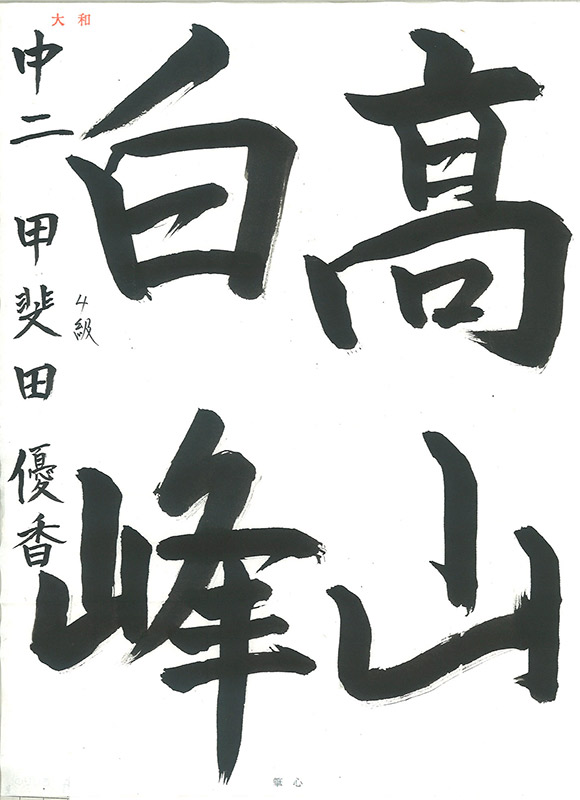 高山
白峰
中二 甲斐田 優香
4級
大和
筆心